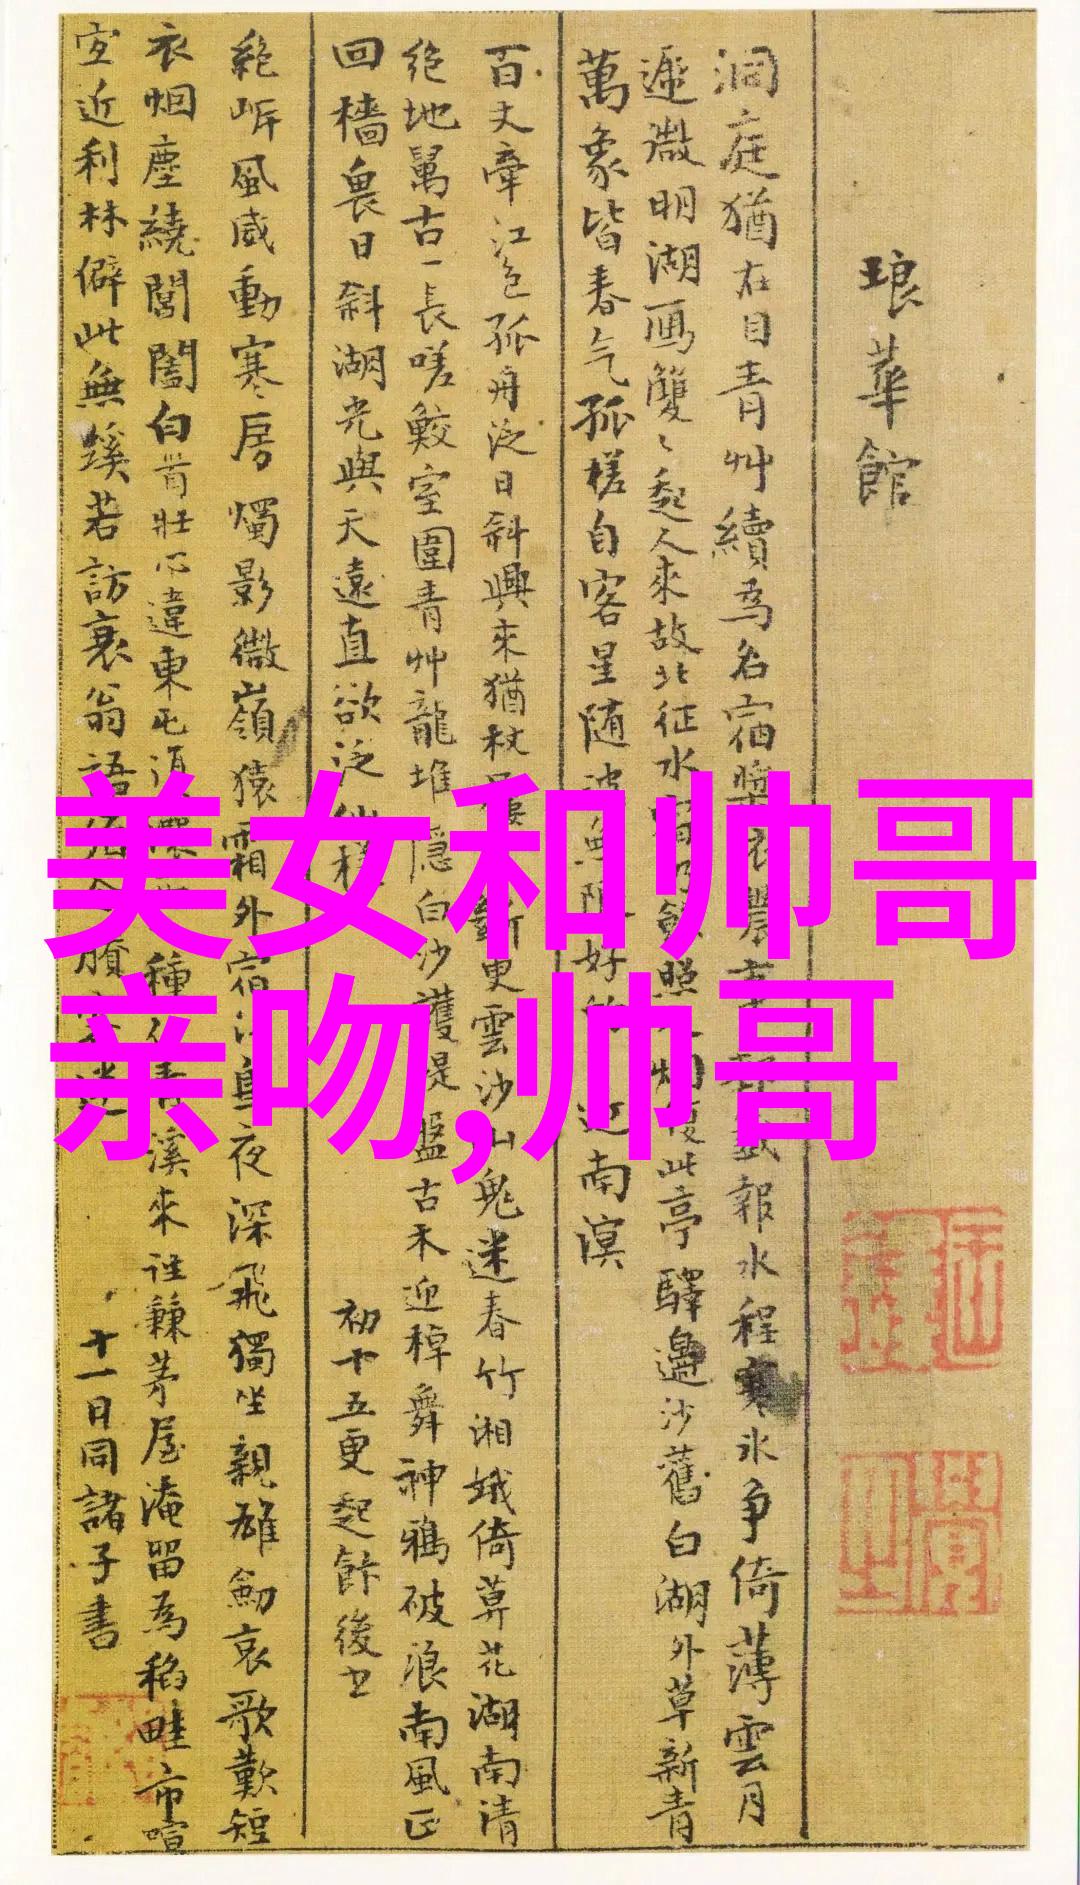 琅華館
洞庭猶在目青艸續為名宿槳衣農事報水程寒水争倚薄雲月
遞微明湖鴈雙〻起人來故北征水宿乃餘照人烟復此亭驛邊沙舊白湖外草新青
萬象皆春气孤槎自客星随波無限好的近南溟
百丈牽江色孤舟泛日斜興來猶杖屨斷更雲沙山鬼迷春竹湘娥倚莫花湖南清
绝地萬古一長嗟鮫室圍青艸龍堆隱白沙護堤盤古木迎棹舞神鴉破浪南風正
回檣畏日斜湖光與天遠直欲泛仙槎
初十五更起餘後書
絶岸風威動寒房燭影微嶺猿霜外宿江鳥夜深飛獨坐親雄劍哀歌歎短
衣烟塵繞閶闔白首壯心違東屯種青溪來往兼茅屋淹留為稻畦市喧
宜近利林僻此無蹊若訪衰翁語
十一日同諸子書
美女和帅哥
亲吻,帅哥